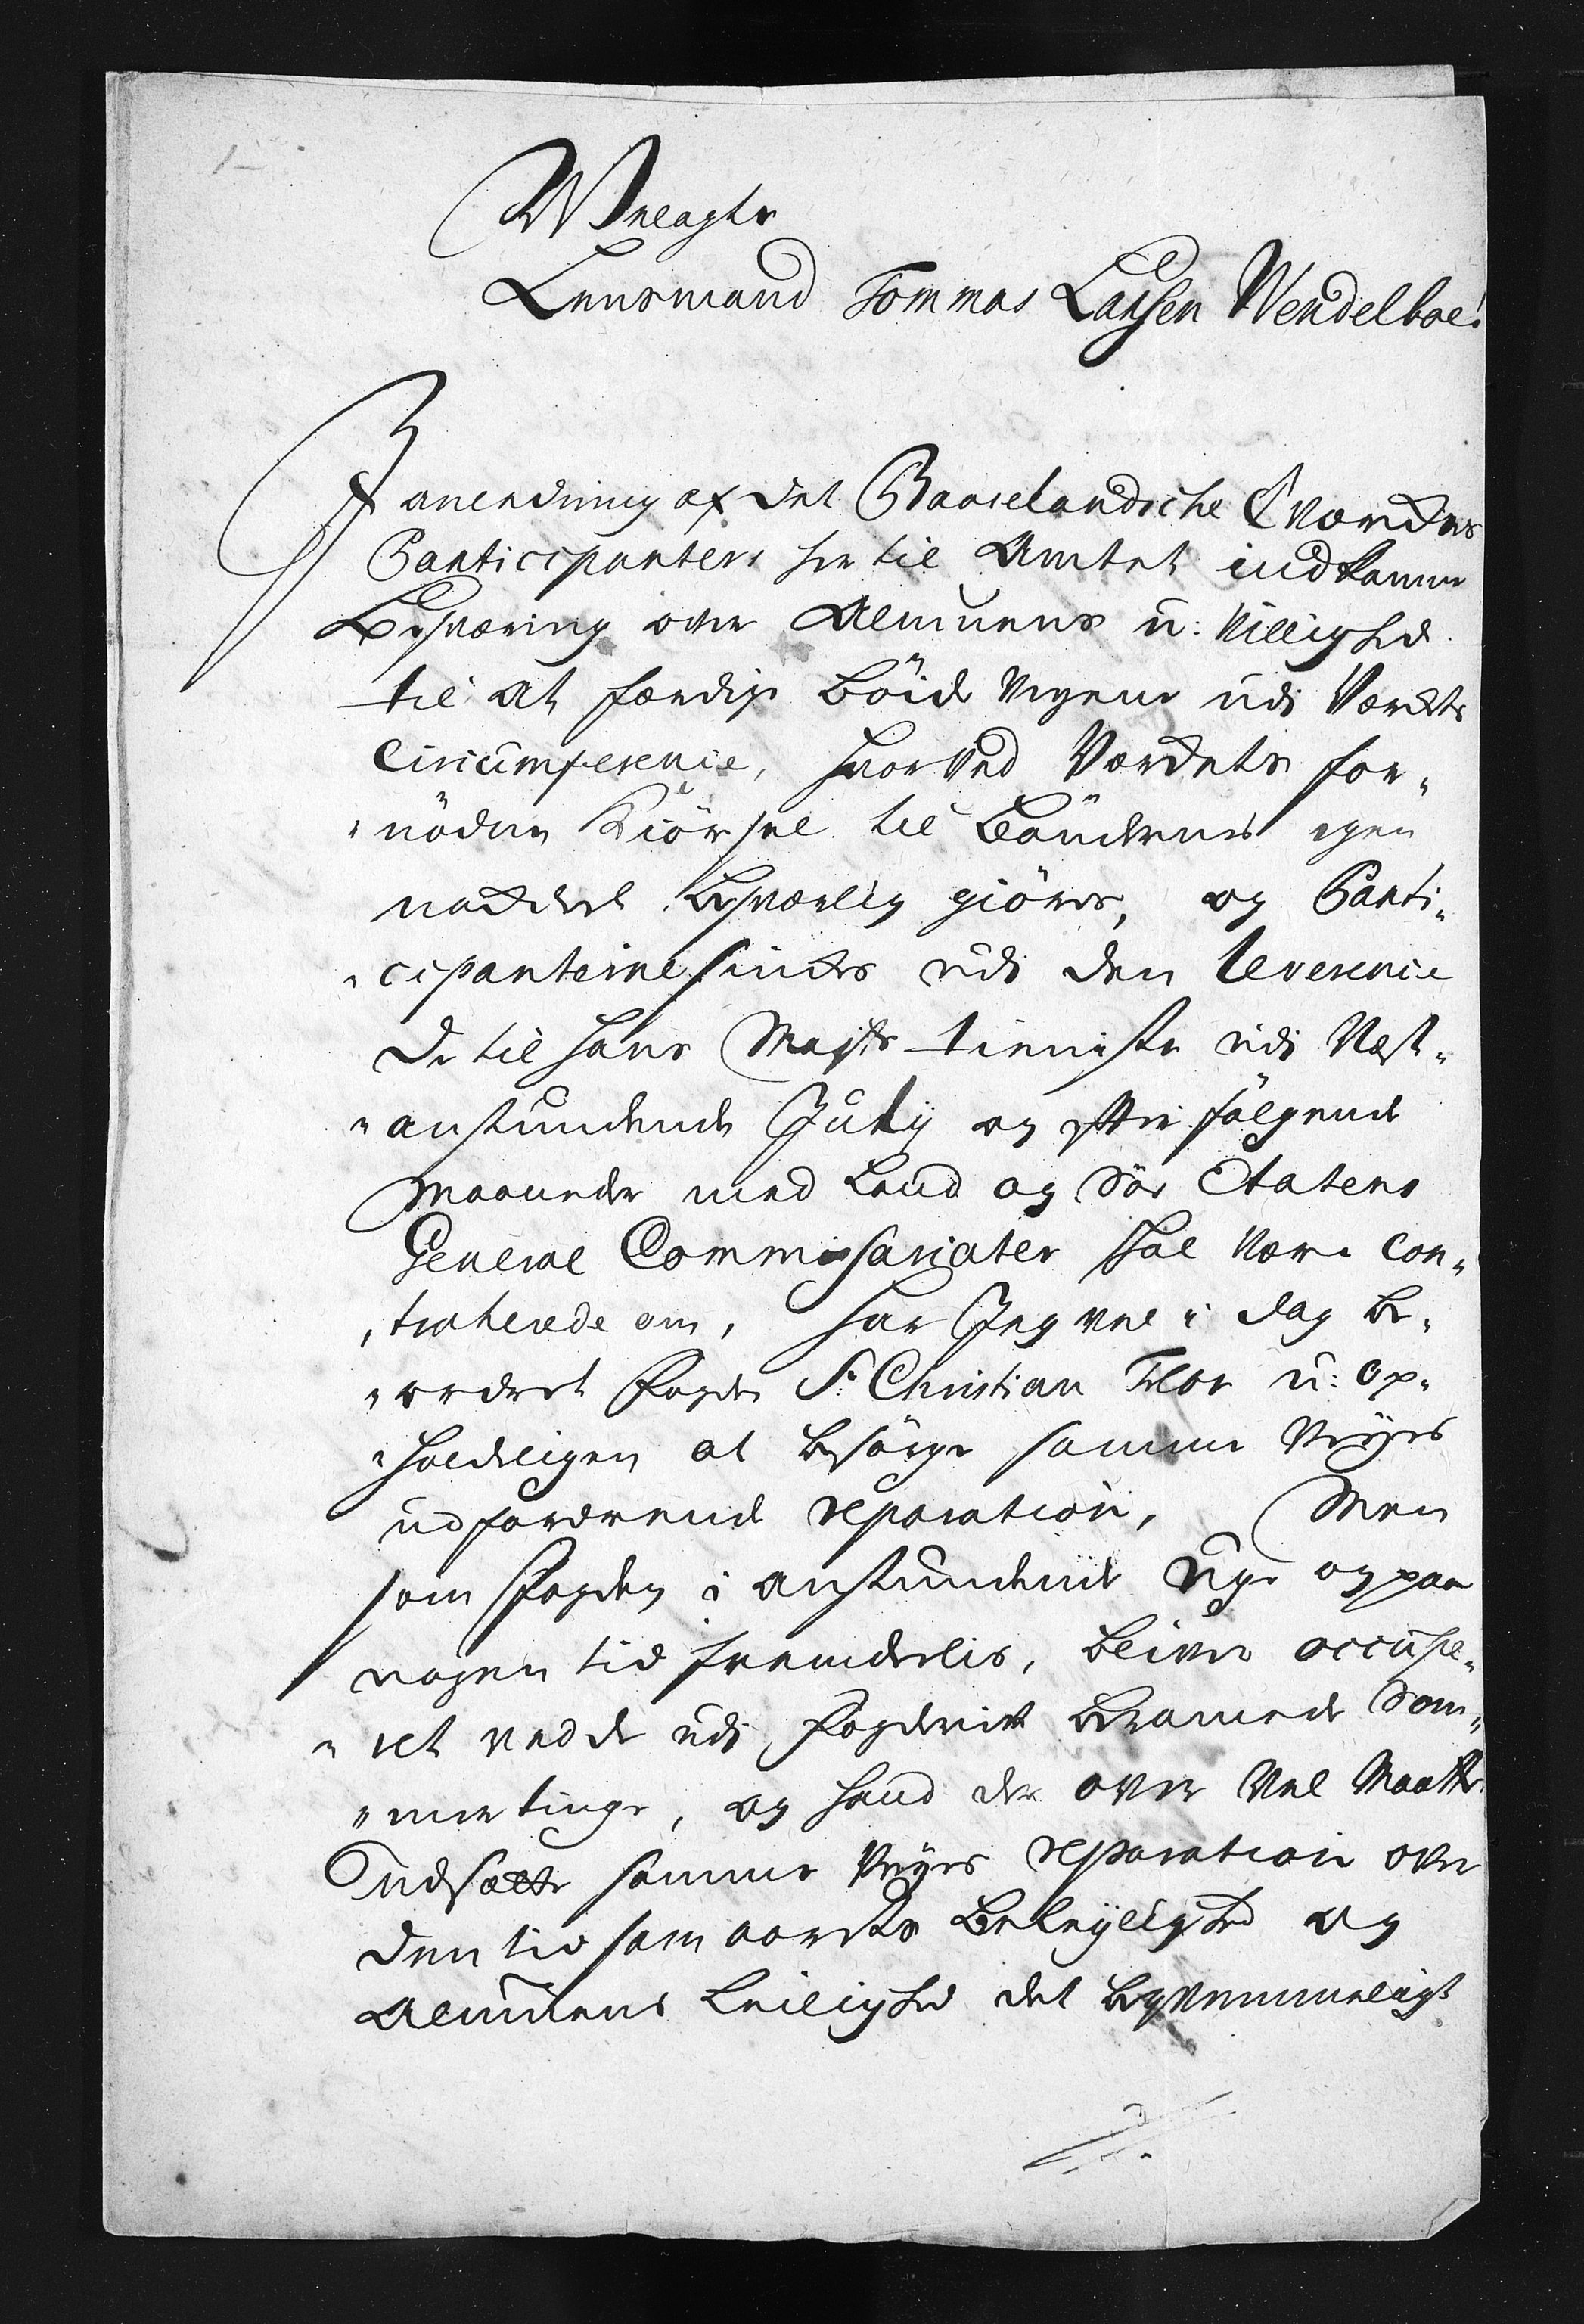 Welagte
Lensmand Tommas Larsen Wendelboe!
J anledning af det Baaselandsche Værckes
Participanters her til Amtet indkomne
Besværing over Almuens u: Villighed
til at færdige böide Veyene udi Værckets
Circumference, hvorved Værckets for„
„nödne Kiörsel til Böndernes egen
nackdeel besværlig giöres, og Parti„
„ciparterne hindres udi den leverence
de til Hans Mayts tienniste udi Nest„
„anstundende July og efterfölgende
Maaneder med Land og Söe Etatens
General Commissariater skal være con„
„traherede om, har Jeg vel i dag be„
„ordret Fogden Sr Christian Flor u: op„
„holdeligen at besörge samme Veyes
udfordrende reparation, Men
som Fogden i anstundende Uge og paa
nogen tid fremdeelis, bliver occupe„
„ret ved de udi Fogderiet berammede Som„
„mertinge, og hand der over vel Maatte
Udsætte samme Veyes reparation over
den tid som aarets Beleyelighed og
Almuens Leilighed det beqvemmeligst